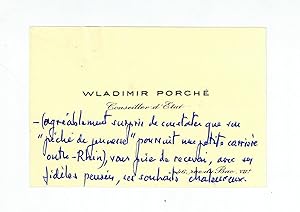 WLADIMIR PORCHÉ
Conseiller d'Etat
- (agréablement surpris de constater que son
"péché de jeunesse" poursuit une petite carrière
outre-Rhin), vous prie de recevoir, avec ses
fidèles pensées, ses souhaits chaleureux.
rue du Bac, VIIe